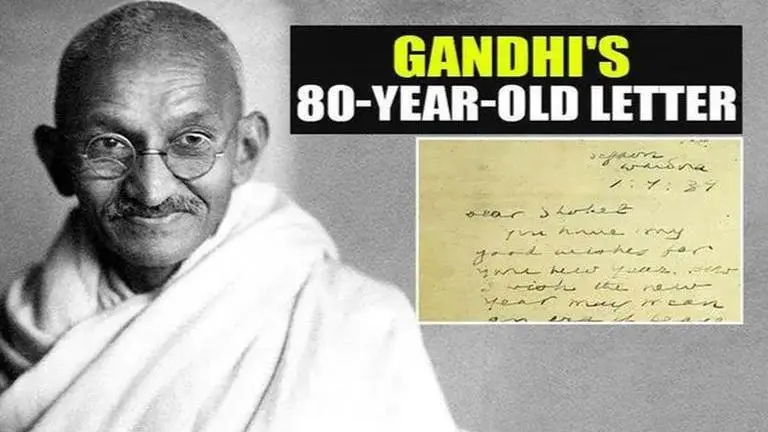 GANDHI'S
80-YEAR-OLD LETTER
Segaon
Wardha
1.9.39
Dear Shohet
You have my
good wishes for
your new year. How
I wish the new
year may mean
an era of peace